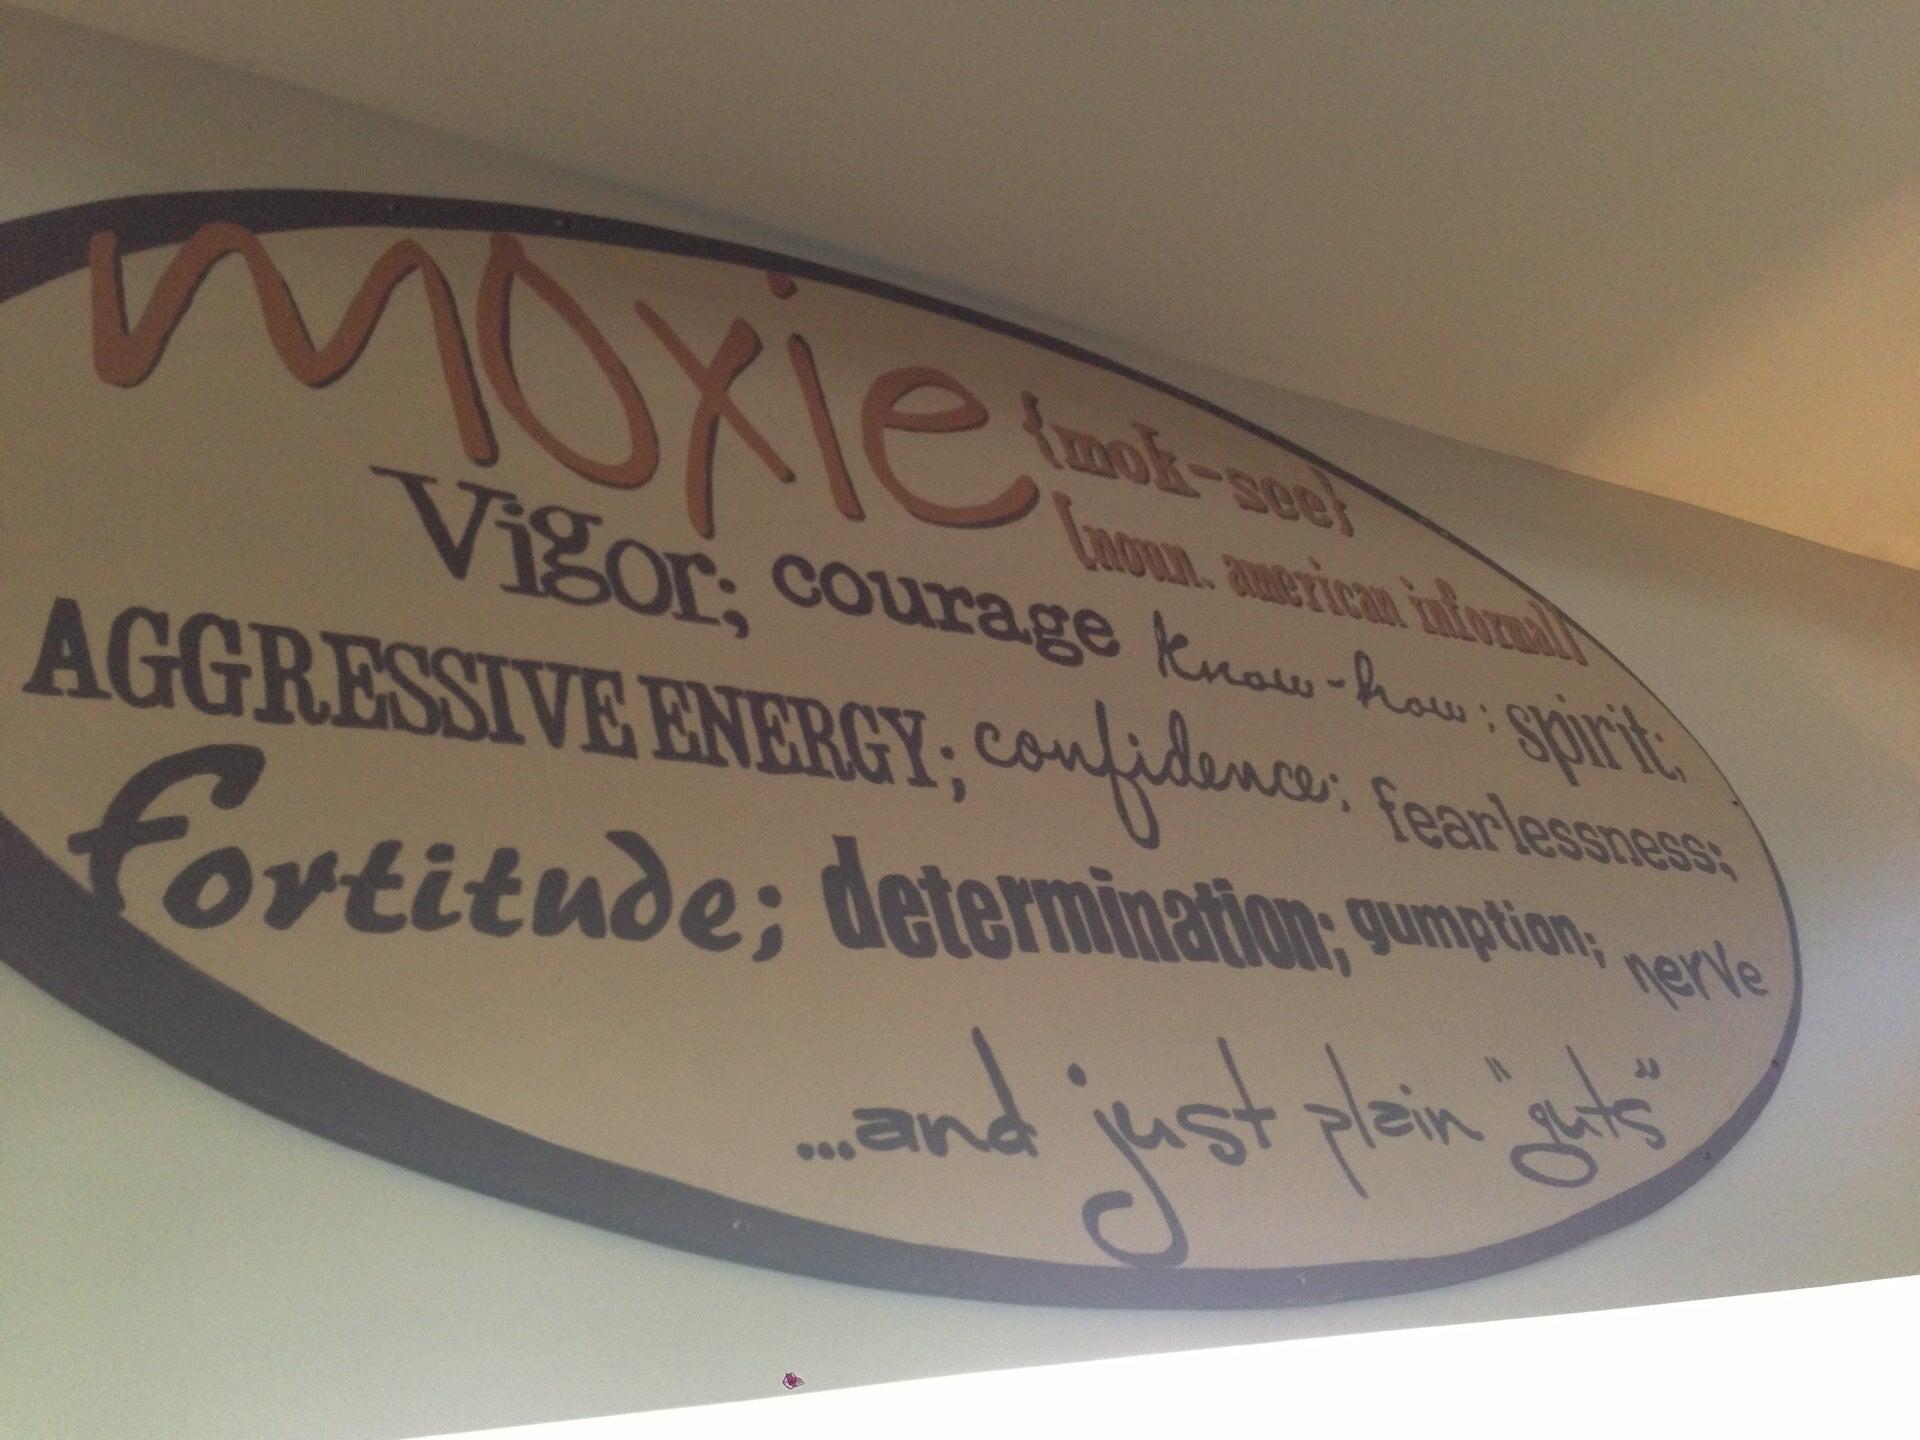 moxie {mok-see}
[noun. american informal]
Vigor; courage know-how; spirit;
AGGRESSIVE ENERGY; confidence; fearlessness;
fortitude; determination; gumption; nerve
...and just plain "guts"